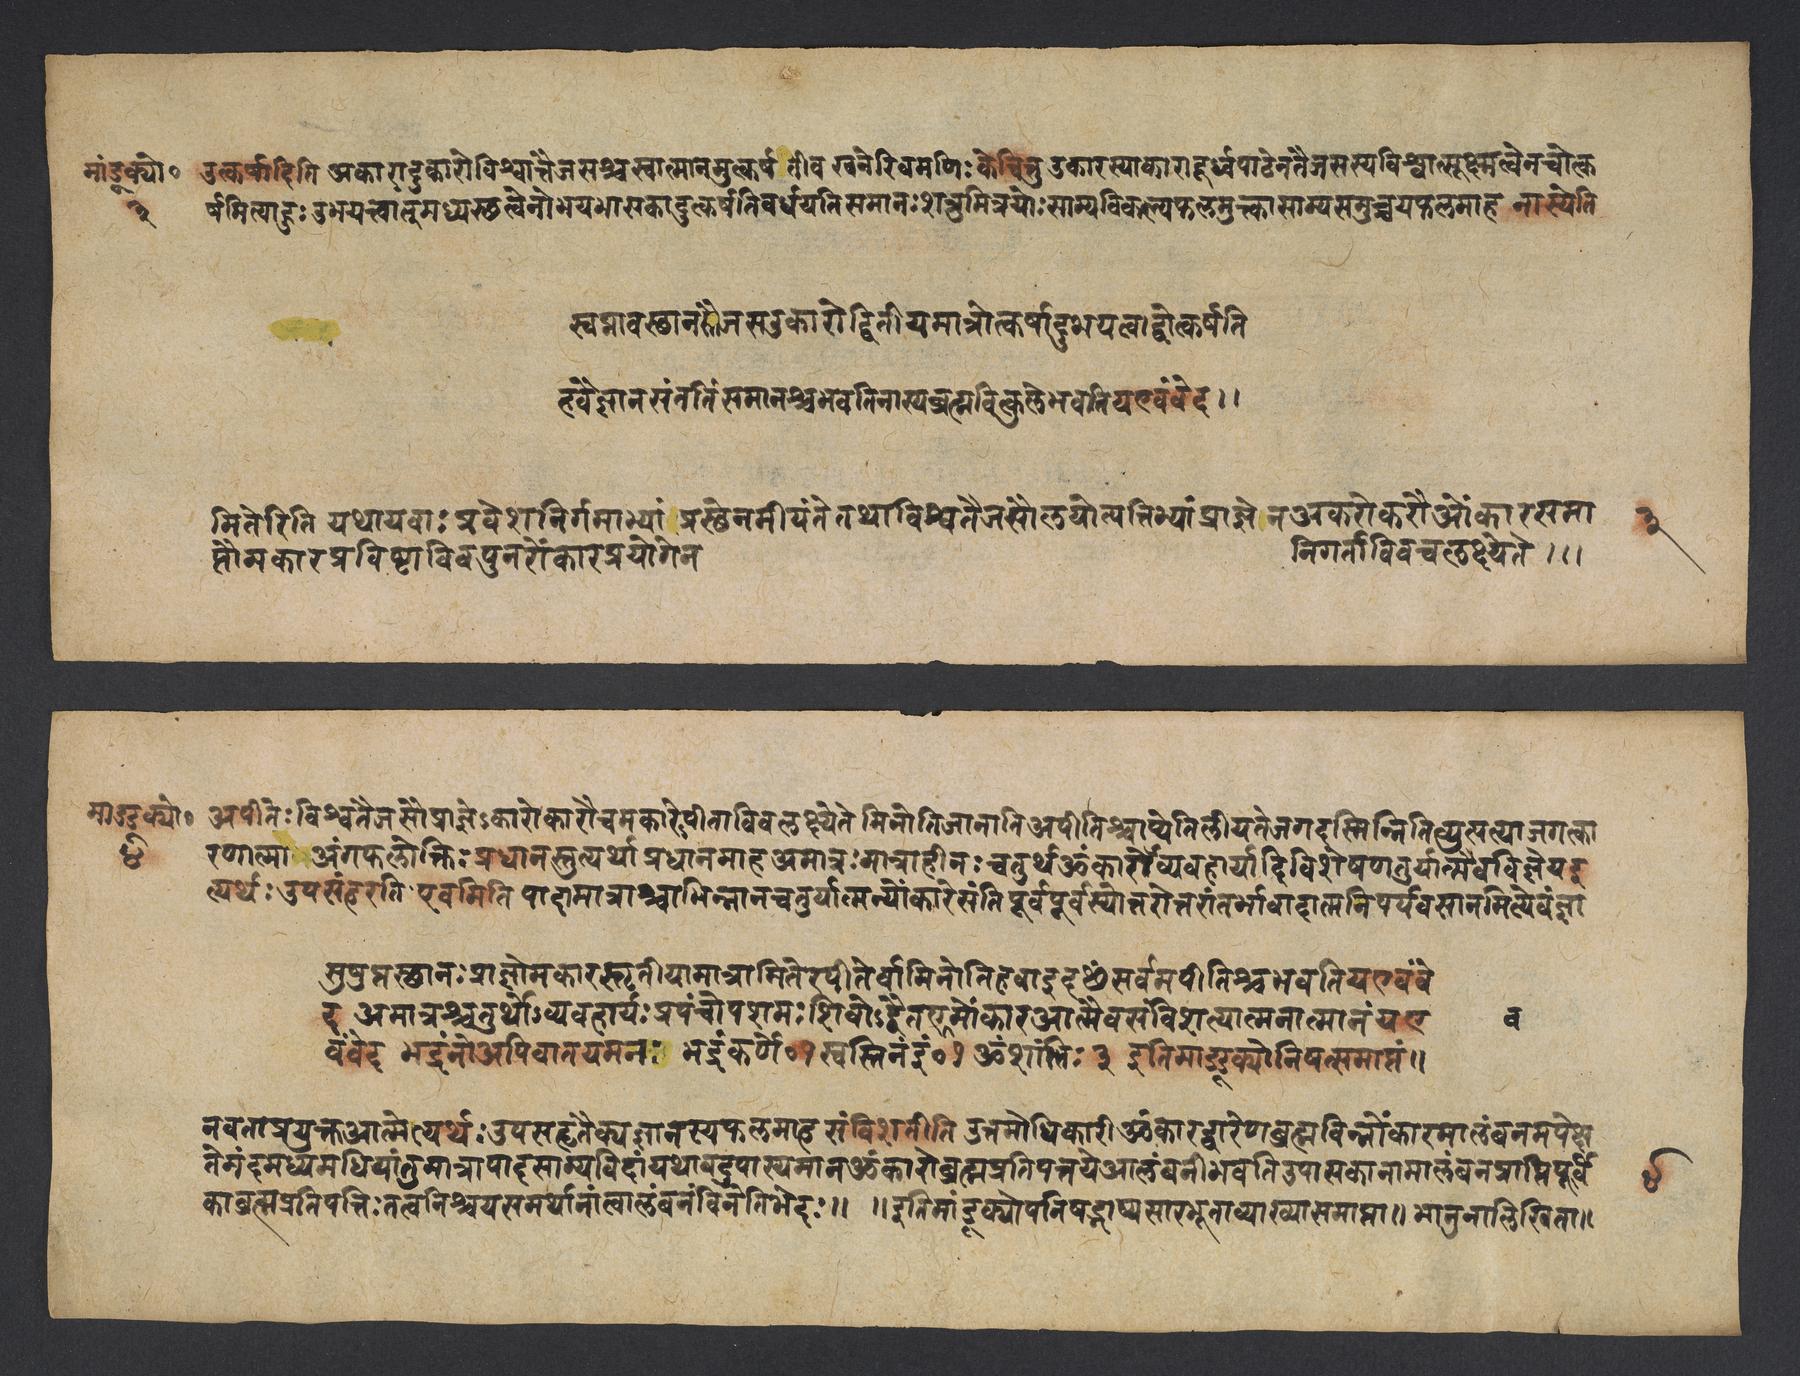 मांडूक्यो॰ उत्कर्षादिति अकारादुकारोविश्वात्तैजसश्चस्वात्मानमुत्कर्षतीव खनेरिवमणिः केचित्तु उकारस्याकारादूर्ध्वपाठेनतैजसस्यविश्वात्सूक्ष्मत्वेनचोत्क
३ र्षमित्याहुः उभयत्त्वात्तुमध्यस्थत्वेनोभयभासकादुत्कर्षतिवर्धयतिसमानःशत्रुमित्रयोःसाम्यविकल्पफलमुत्क्कासाम्यसमुच्चयफलमाह नास्येति
स्वप्नावस्थानस्तैजसउकारोद्वितीयमात्रोत्कर्षादुभयत्वाद्वोत्कर्षति
हवैज्ञानसंततिंसमानश्चभवतिनास्यब्रह्मवित्कुलेभवतियएवंवेद।।
मितेरिति यथायवाः प्रवेशनिर्गमाभ्यां प्रस्थेनमीयंते तथाविश्वतैजसौलयोत्पत्तिभ्यां प्राज्ञेनअकरोकरौओंकारसमा ३
प्तौमकारप्रविष्टाविवपुनरोंकारप्रयोगेन निगर्ताविवचलक्ष्येते ।।।
माण्डूक्यो॰ अपीतेः विश्वतैजसौप्राज्ञेऽकारोकारौचमकारेपीताविवलक्ष्येते मिनोतिजानाति अपीतिश्चाप्येतिलीयतेजगदस्मिन्नितिव्युत्पत्त्याजगत्का
४ रणात्मा अंगफलोक्तिः प्रधानस्तुत्यर्था प्रधानमाह अमात्रः मात्राहीनः चतुर्थॐकारोऽव्यवहार्यादिविशेषणतुर्यात्मैवविज्ञेयइ
त्यर्थः उपसंहरति एवमिति पादामात्राश्चाभिन्नानचतुर्यात्मन्योंकारेसंति पूर्वपूर्वस्योत्तरोत्तरांतर्भावादात्मनिपर्यवसानमित्येवंज्ञा
सुषुप्तस्थानः प्राज्ञोमकारस्तृतीयामात्रामितेरपीतेर्वामिनोतिहवाइदꣳसर्वमपीतिश्चभवतियएवंवे
द अमात्रश्चतुर्थोऽव्यवहार्यः प्रपंचोपशमः शिवोऽद्वैतएवमोंकारआत्मैवसंविशत्यात्मनात्मानंयए व
वंवेद भद्रंनोअपिवातयमनः भद्रंकर्णे॰१ स्वस्तिनइं॰१ ॐशांतिः ३ इतिमाण्डूक्योनिषत्समाप्तं॥
नवताप्रयुक्तआत्मेत्यर्थः उपसंहृतैक्यज्ञानस्यफलमाह संविशतीति उत्तमोधिकारी ॐकारद्वारेणब्रह्मविन्नोंकारमालंबनमपेक्ष
तेमंदमध्यमधियांतुमात्रापादसाम्यविदांयथावदुपास्यमानॐकारोब्रह्मप्रतिपत्तयेआलंबनीभवतिउपासकानामालंबनप्राप्तिपूर्वि ४
काब्रह्मप्रतिपत्तिः तत्वनिश्चयसमर्थानांत्वालंबनंविनेतिभेदः॥ ॥इतिमांडूक्योपनिषद्भाष्यसारभूताव्याख्यासमाप्ता॥ भानुनालिखिता॥